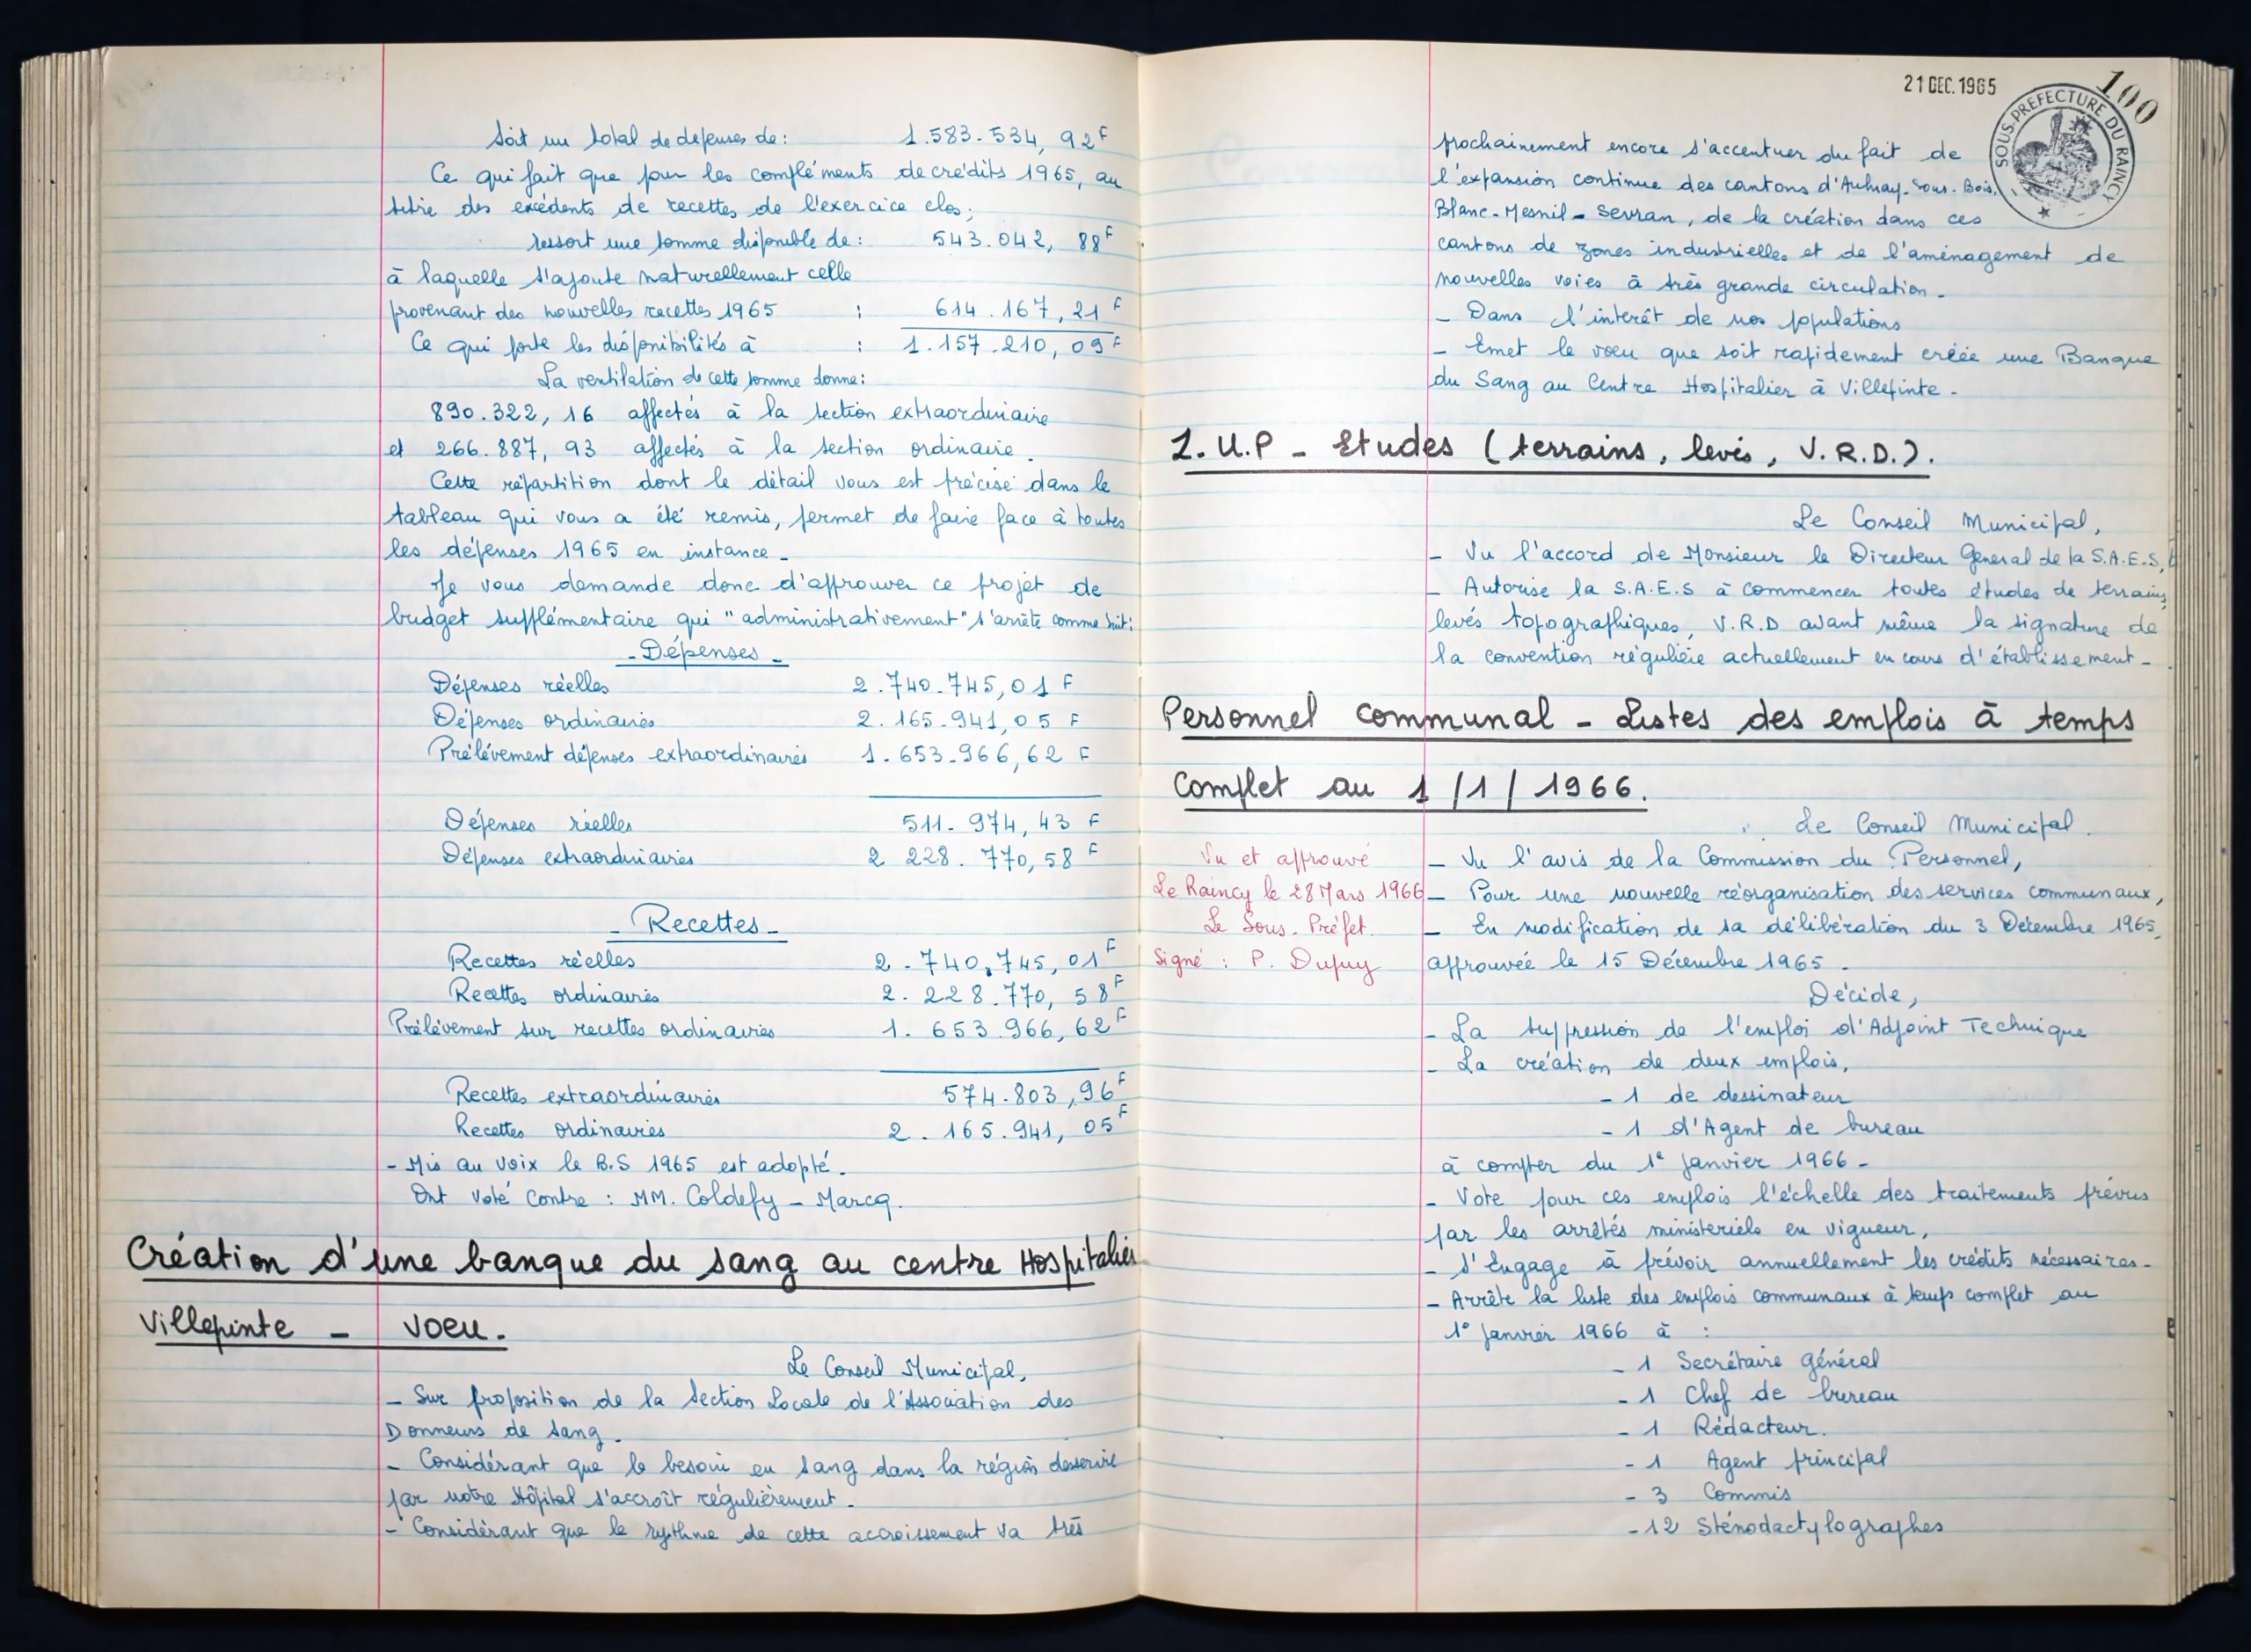 Soit un total de dépenses de : 1.583.534, 92 F
Ce qui fait que pour les compléments de crédits 1965, au
titre des excédents de recettes de l'exercice clos,
ressort une somme disponible de : 543.042, 88 F
à laquelle s'ajoute naturellement celle
provenant des nouvelles recettes 1965 : 614.167,21 F
Ce qui porte les disponibilités à : 1.157.210, 09 F
La ventilation de cette somme donne :
890.322, 16 affectés à la section extraordinaire
et 266.887, 93 affectés à la section ordinaire.
Cette répartition dont le détail vous est précisé dans le
tableau qui vous a été remis, permet de faire face à toutes
les dépenses 1965 en instance -
Je vous demande donc d'approuver ce projet de
budget supplémentaire qui "administrativement" s'arrête comme suit :
- Dépenses -
Dépenses réelles 2.740.745,01 F
Dépenses ordinaires 2.165.941,05 F
Prélévement dépenses extraordinaires 1.653.966,62 F
Dépenses réelles 511.974,43 F
Dépenses extraordinaires 2 228.770,58 F
- Recettes -
Recettes réelles 2.740.745,01 F
Recettes ordinaires 2.228.770, 58 F
Prélévement sur recettes ordinaires 1.653.966,62 F
Recettes extraordinaires 574.803,96 F
Recettes ordinaires 2.165.941, 05 F
- Mis au voix le B.S 1965 est adopté.
Ont voté contre : MM. Coldefy - Marcq.
Création d'une banque du sang au centre Hospitalier
Villepinte - Voeu.
Le Conseil Municipal,
- Sur proposition de la Section Locale de l'Association des
Donneurs de sang.
- Considérant que le besoin en sang dans la région desservie
par notre Hôpital s'accroît régulièrement.
- Considérant que le rythme de cette accroissement va très
21 DEC. 1965
100
SOUS-PREFECTURE DU RAINCY
prochainement encore s'accentuer du fait de
l'expansion continue des cantons d'Aulnay-Sous-Bois,
Blanc-Mesnil - Sevran, de la création dans ces
cantons de zones industrielles et de l'aménagement de
nouvelles voies à très grande circulation -
- Dans l'interêt de nos populations
- Emet le voeu que soit rapidement créée une Banque
du Sang au Centre Hospitalier à Villepinte -
Z.U.P - Etudes (terrains, levés, V.R.D.).
Le Conseil Municipal,
- Vu l'accord de Monsieur le Directeur Général de la S.A.E.S,
- Autorise la S.A.E.S à commencer toutes études de terrains,
levés topographiques, V.R.D avant même la signature de
la convention régulière actuellement en cours d'établissement -
Personnel communal - Listes des emplois à temps
Complet au 1/1/1966.
Le Conseil Municipal.
- Vu l'avis de la Commission du Personnel,
- Pour une nouvelle réorganisation des services communaux,
- En modification de sa délibération du 3 Décembre 1965,
approuvée le 15 Décembre 1965.
Vu et approuvé
Le Raincy le 28 Mars 1966
Le Sous-Préfet.
Signé : P. Dupuy
Décide,
- La suppression de l'emploi d'Adjoint Technique
- La création de deux emplois,
- 1 de dessinateur
- 1 d'Agent de bureau
à compter du 1e Janvier 1966 -
- Vote pour ces emplois l'échelle des traitements prévus
par les arrêtés ministeriels en vigueur,
- S'Engage à prévoir annuellement les crédits nécessaires -
- Arrête la liste des emplois communaux à temps complet au
1° Janvier 1966 à :
- 1 Secrétaire général
- 1 Chef de bureau
- 1 Rédacteur.
- 1 Agent principal
- 3 Commis
- 12 Sténodactylographes